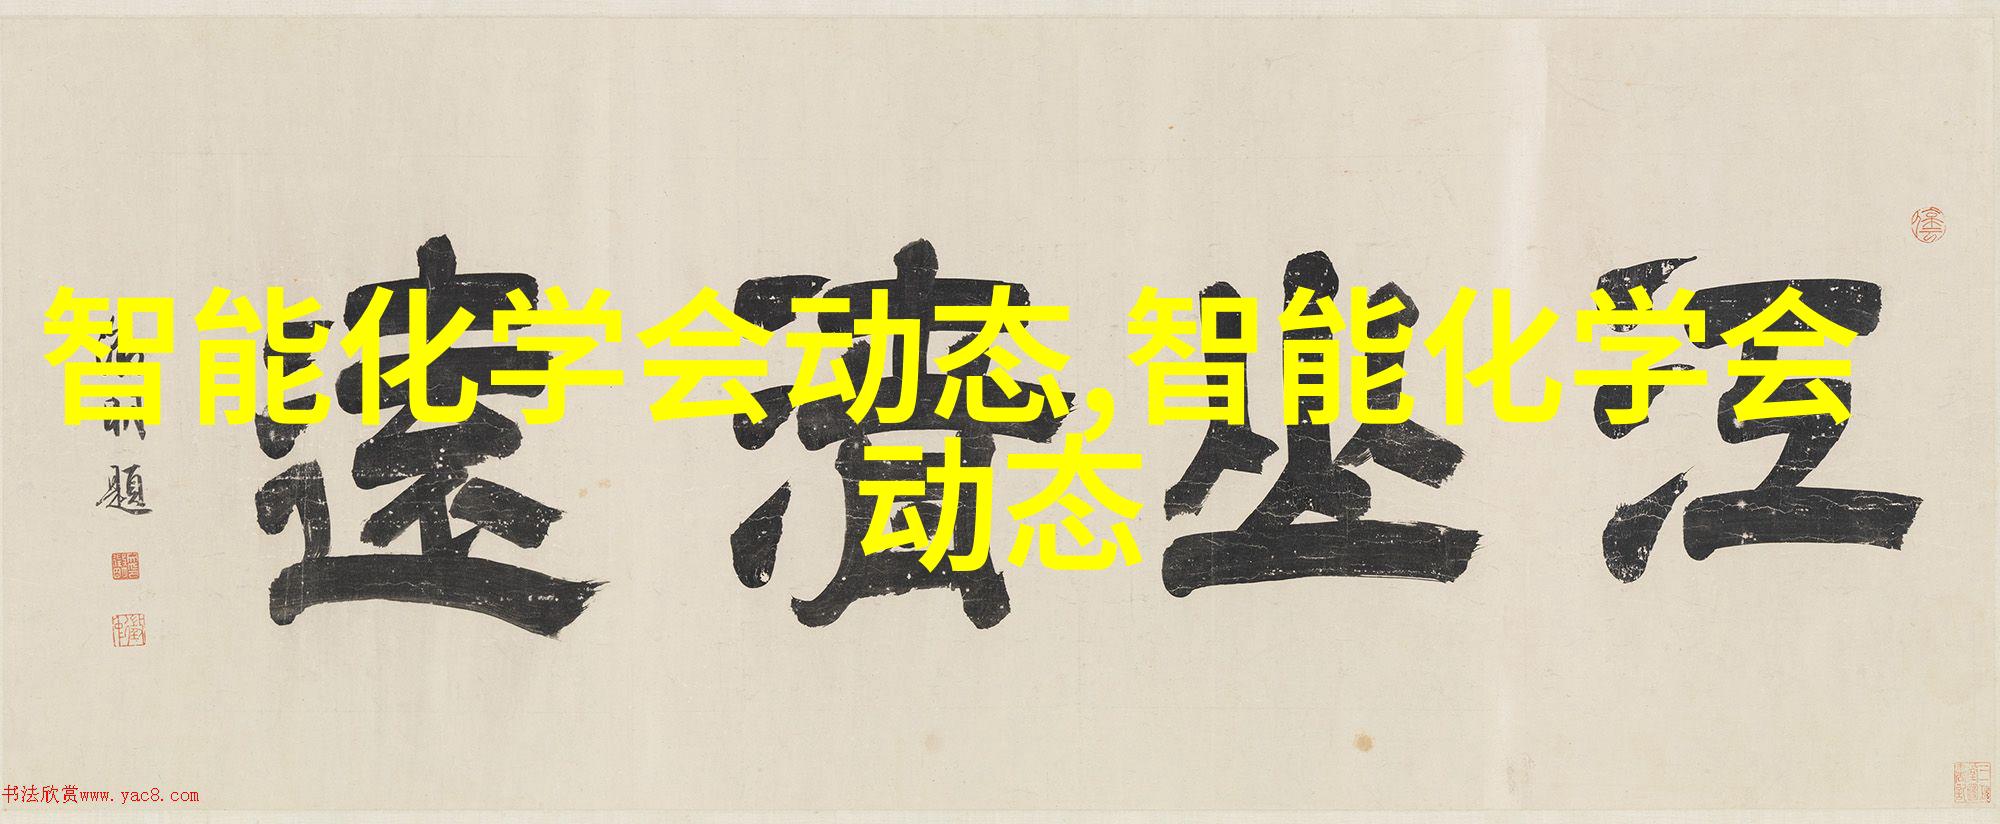 智能化学会动态,智能化学会
动态
江 遠
明題
书法欣赏www.yac8.com